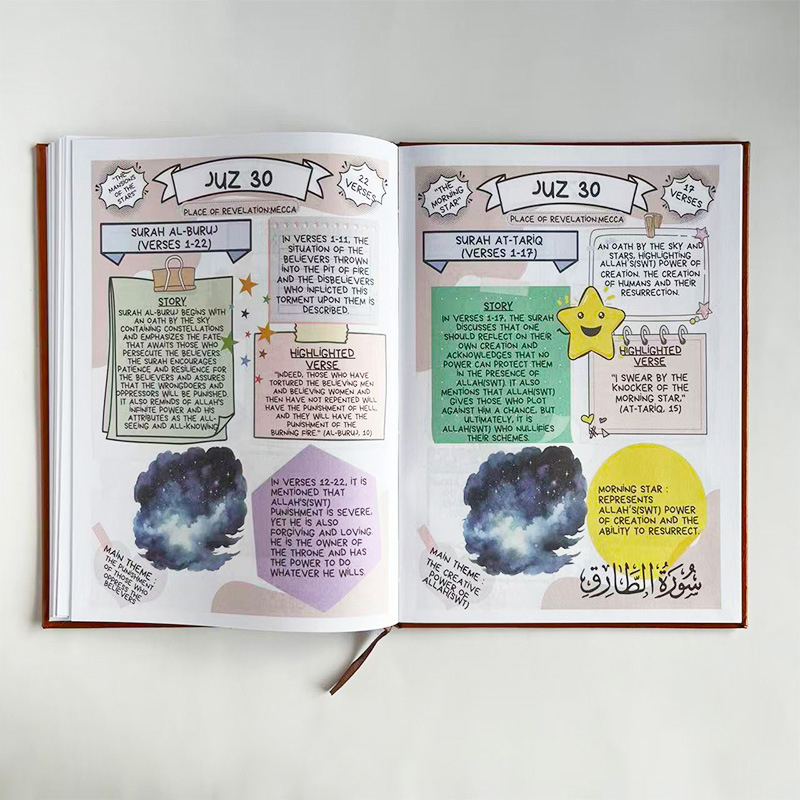 "THE
MANSIONS
OF THE
STARS"
JUZ 30
22
VERSES
PLACE OF REVELATION:MECCA
SURAH AL-BURUJ
(VERSES 1-22)
IN VERSES 1-11, THE
SITUATION OF THE
BELIEVERS THROWN
INTO THE PIT OF FIRE
AND THE DISBELIEVERS
WHO INFLICTED THIS
TORMENT UPON THEM IS
DESCRIBED.
STORY
SURAH AL-BURUJ BEGINS WITH
AN OATH BY THE SKY
CONTAINING CONSTELLATIONS
AND EMPHASIZES THE FATE
THAT AWAITS THOSE WHO
PERSECUTE THE BELIEVERS.
THE SURAH ENCOURAGES
PATIENCE AND RESILIENCE FOR
THE BELIEVERS AND ASSURES
THAT THE WRONGDOERS AND
OPPRESSORS WILL BE PUNISHED.
IT ALSO REMINDS OF ALLAH'S
INFINITE POWER AND HIS
ATTRIBUTES AS THE ALL-
SEEING AND ALL-KNOWING
HIGHLIGHTED
VERSE
"INDEED, THOSE WHO HAVE
TORTURED THE BELIEVING MEN
AND BELIEVING WOMEN AND
THEN HAVE NOT REPENTED WILL
HAVE THE PUNISHMENT OF HELL,
AND THEY WILL HAVE THE
PUNISHMENT OF THE
BURNING FIRE." (AL-BURUJ, 10)
IN VERSES 12-22, IT IS
MENTIONED THAT
ALLAH'S(SWT)
PUNISHMENT IS SEVERE,
YET HE IS ALSO
FORGIVING AND LOVING.
HE IS THE OWNER OF
THE THRONE AND HAS
THE POWER TO DO
WHATEVER HE WILLS.
MAIN THEME :
THE PUNISHMENT
OF THOSE WHO
OPPRESS THE
BELIEVERS
"THE
MORNING
STAR"
JUZ 30
17
VERSES
PLACE OF REVELATION:MECCA
SURAH AT-TARIQ
(VERSES 1-17)
AN OATH BY THE SKY AND
STARS, HIGHLIGHTING
ALLAH'S(SWT) POWER OF
CREATION. THE CREATION
OF HUMANS AND THEIR
RESURRECTION.
STORY
IN VERSES 1-17, THE SURAH
DISCUSSES THAT ONE
SHOULD REFLECT ON THEIR
OWN CREATION AND
ACKNOWLEDGES THAT NO
POWER CAN PROTECT THEM
IN THE PRESENCE OF
ALLAH(SWT). IT ALSO
MENTIONS THAT ALLAH(SWT)
GIVES THOSE WHO PLOT
AGAINST HIM A CHANCE, BUT
ULTIMATELY, IT IS
ALLAH(SWT) WHO NULLIFIES
THEIR SCHEMES.
HIGHLIGHTED
VERSE
"I SWEAR BY THE
KNOCKER OF THE
MORNING STAR."
(AT-TARIQ, 15)
MORNING STAR :
REPRESENTS
ALLAH'S(SWT) POWER
OF CREATION AND THE
ABILITY TO RESURRECT.
MAIN THEME :
THE CREATIVE
POWER OF
ALLAH(SWT)
سُورَةُ الطَّارِقِ